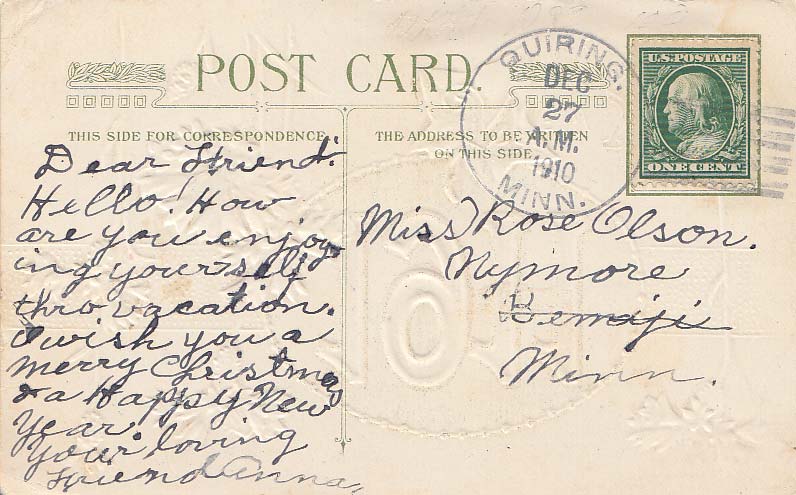 POST CARD.
THIS SIDE FOR CORRESPONDENCE
THE ADDRESS TO BE WRITTEN
ON THIS SIDE
QUIRING.
DEC
27
A.M.
1910
MINN.
U.S. POSTAGE
ONE CENT
Dear Friend:
Hello! How
are you enjoy
ing yourself
thro vacation.
I wish you a
merry Christmas
& a Happy New
Year.
Your loving
friend Anna.
Miss Rose Olson.
Nymore
Bemiji
Minn.